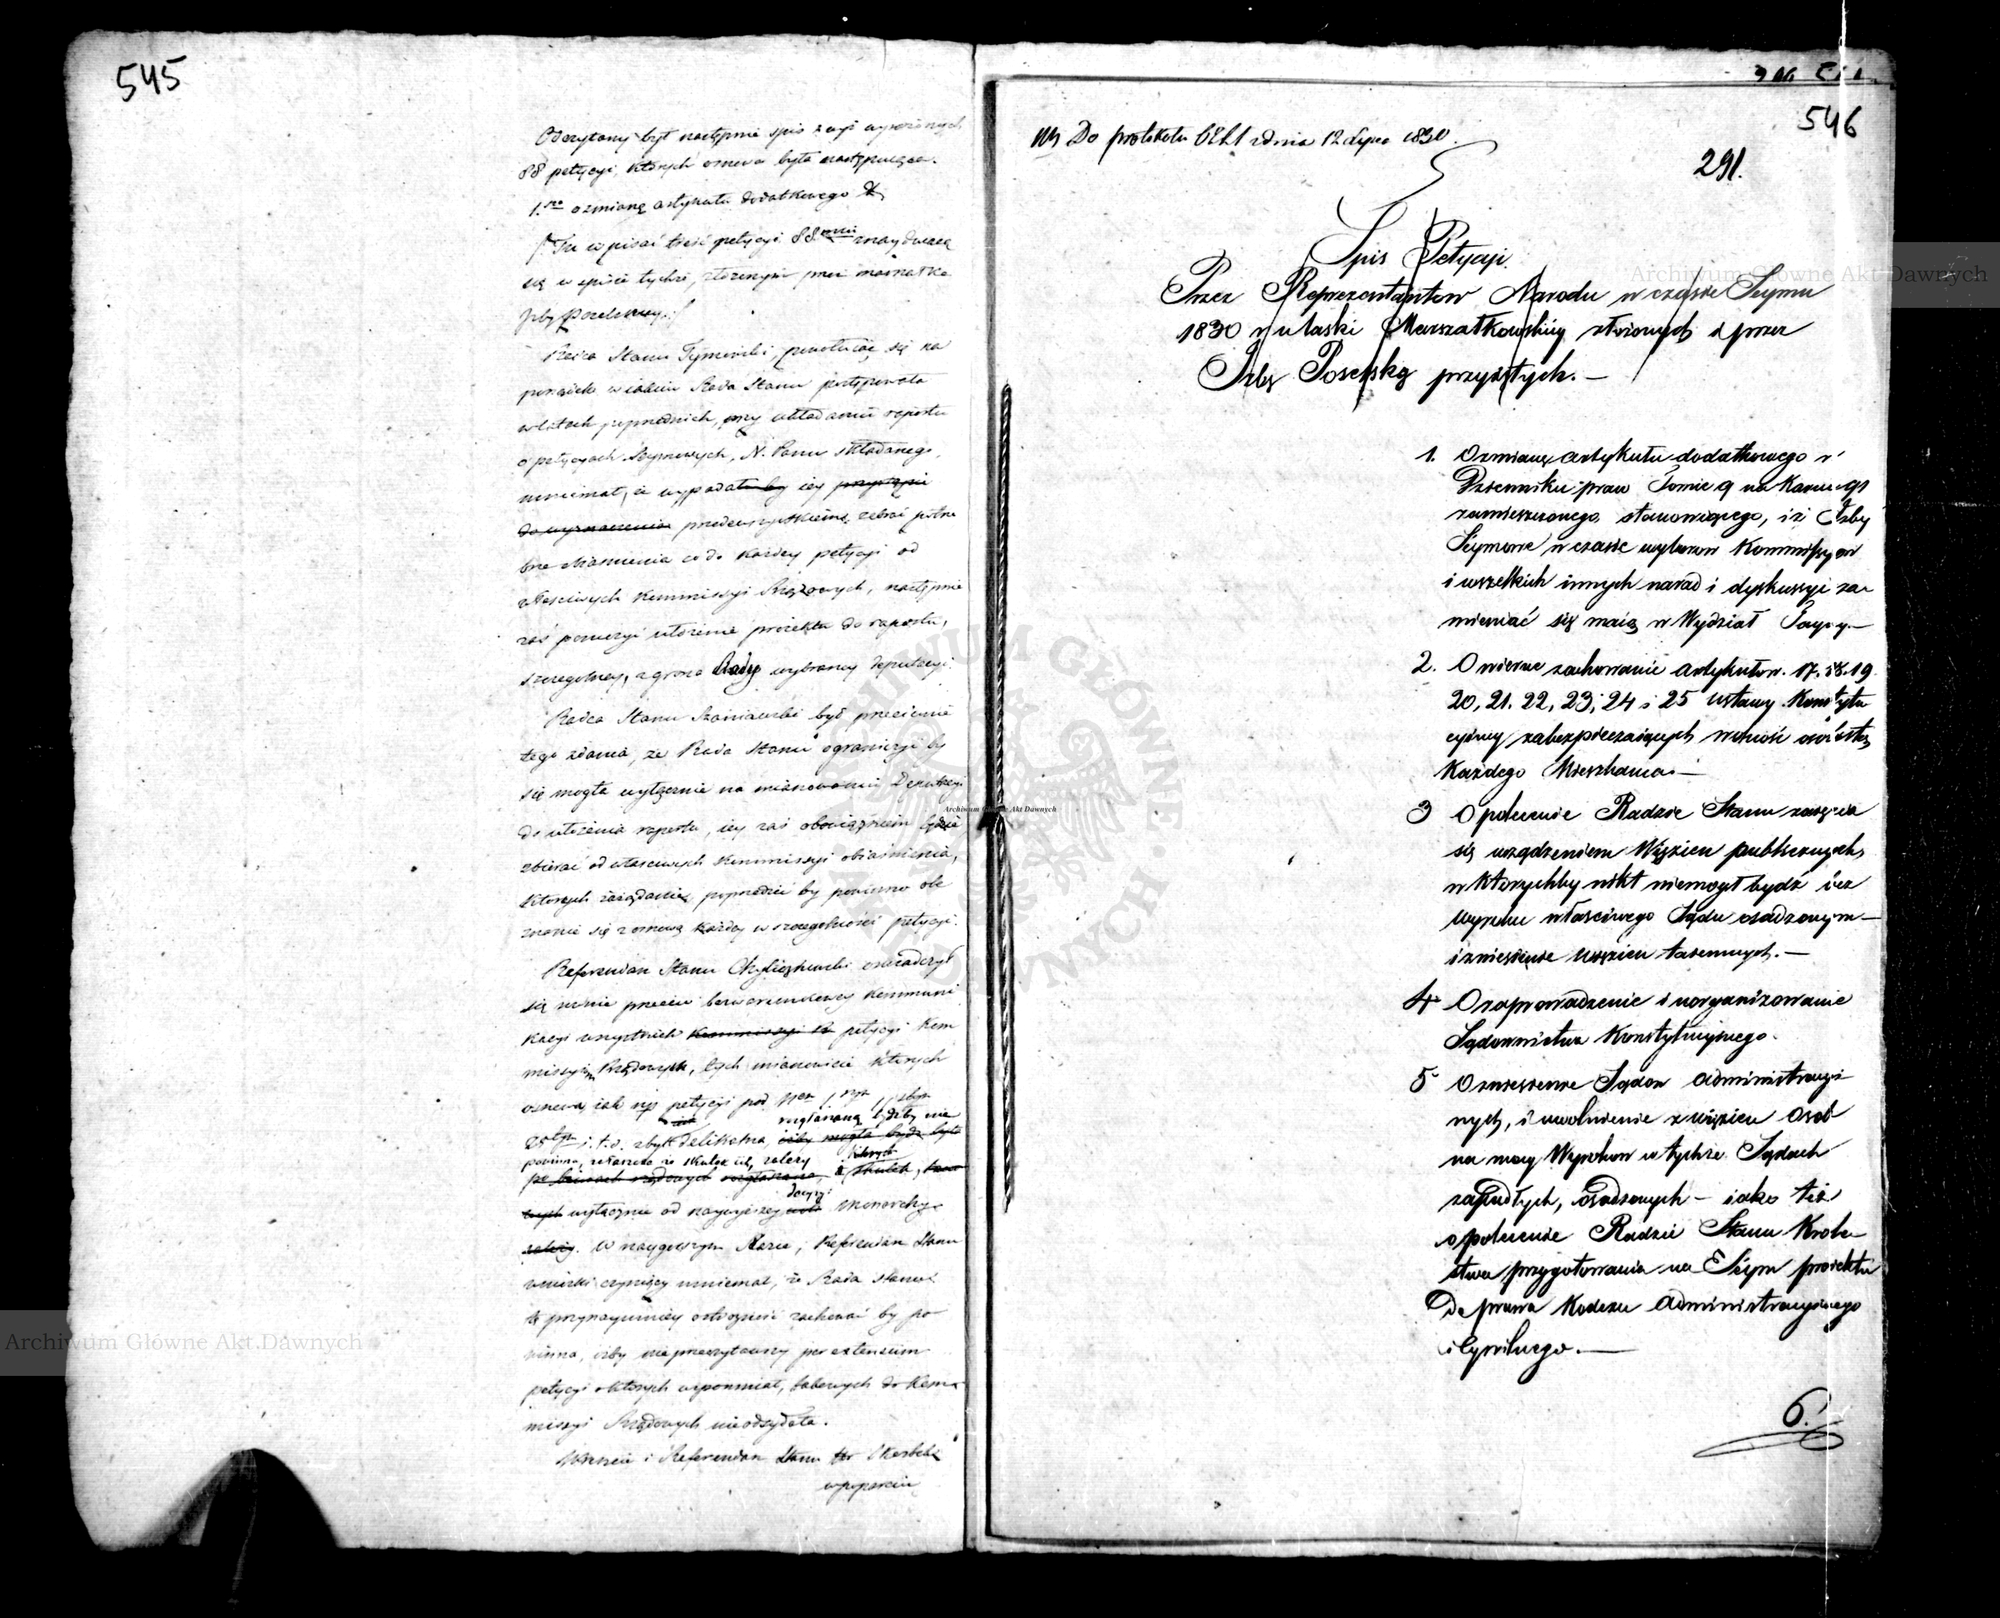 545
Odczytany był następnie spis z wyż wyrażonych
88 petycyi, których osnowa była następuiąca.
1.º o zmianę artykułu dodatkowego
/Tu wpisać treść petycyi 88.miu znayduiącą
się w spisie tychże, złożonym przez marszałka
Izby Poselskiey./
Radca Stanu Tymowski, powołuiąc się na
porządek w iakim Rada Stanu postępowała
w latach poprzednich, przy układaniu raportu
o petycyach Seymowych, N. Panu składanego,
mniemał, iż wypada
do wyznaczenia przedewszystkiem zebrać potrze
bne obiaśnienia co do każdey petycyi od
właściwych Kommissyi Rządowych, następnie
zaś poruczyć ułożenie proiektu do raportu,
szczególney, z grona Rady wybraney deputacyi.
Radca Stanu Szaniawski był przeciwnie
tego zdania, że Rada Stanu ograniczyć by
się mogła wyłącznie na mianowaniu Deputacyi
do ułożenia raportu, iey zaś obowiązkiem będzie
zbierać od właściwych Kommissyi obiaśnienia,
których zażądanie poprzedzić by powinno obe
znanie się z osnową każdey w szczególności petycyi.
Referendarz Stanu Chyliczkowski oświadczył
się równie przeciw bezwarunkowey Kommuni
kacyi wszystkich petycyi Kom
missyiom Rządowym, tych mianowicie których
osnowa, iak np. petycyi pod
i t. d. zbyt delikatna
powinna, zwłaszcza że skutek ich zależy
decyzyi
wyłącznie od naywyższey woli Monarchy.
W naygorszym Razie, Referendarz Stanu
wnioski czyniący mniemał, że Rada Stanu
tę przynaymniey ostrożność zachować by po
winna, iżby nieprzeczytawszy per extensum
petycyi o których wspomniał, takowych do Kom
missyi Rządowych nieodsyłała.
Wreszcie i Referendarz Stanu
w poparciu
546
Do protokołu 6221 z dnia 12 Lipca 1830.
291.
Spis Petycyi
Przez Reprezentantów Narodu w czasie Seymu
1830 r. u laski Marszałkowskiey złożonych a przez
Izbę Poselską przyiętych. —
1. O zmianę artykułu dodatkowego w
Dzienniku praw Tomie 9 na Karcie 91
zamieszczonego, stanowiącego, iż Izby
Seymowe w czasie wyborów Kommissyów
i wszelkich innych narad i dyskussyi za-
mieniać się maią w Wydział Tayny. —
2. O wierne zachowanie artykułów. 17. 18. 19
20, 21. 22, 23, 24 i 25 Ustawy Konstytu
cyiney zabezpieczaiących wolność osobistą
Każdego Mieszkańca. —
3 O polecenie Radzie Stanu zaięcia
się urządzeniem Więzień publicznych,
w którychby nikt niemógł bydź bez
wyroku właściwego Sądu osadzonym —
i zniesienie więzień taiemnych. —
4 O zaprowadzenie i uorganizowanie
Sądownictwa Konstytucyinego.
5 O zniesienie Sądów Administracyi
nych, i uwolnienie z więzień Osób
na mocy Wyroków w tychże Sądach
zapadłych, osadzonych — iako też
o polecenie Radzie Stanu Króle-
stwa przygotowania na Seym proiektu
Do prawa Kodexu Administracyinego
i Cywilnego. —
6.
Archiwum Główne Akt Dawnych
Archiwum Główne Akt Dawnych
Archiwum Główne Akt Dawnych
ARCHIWUM GŁÓWNE AKT DAWNYCH